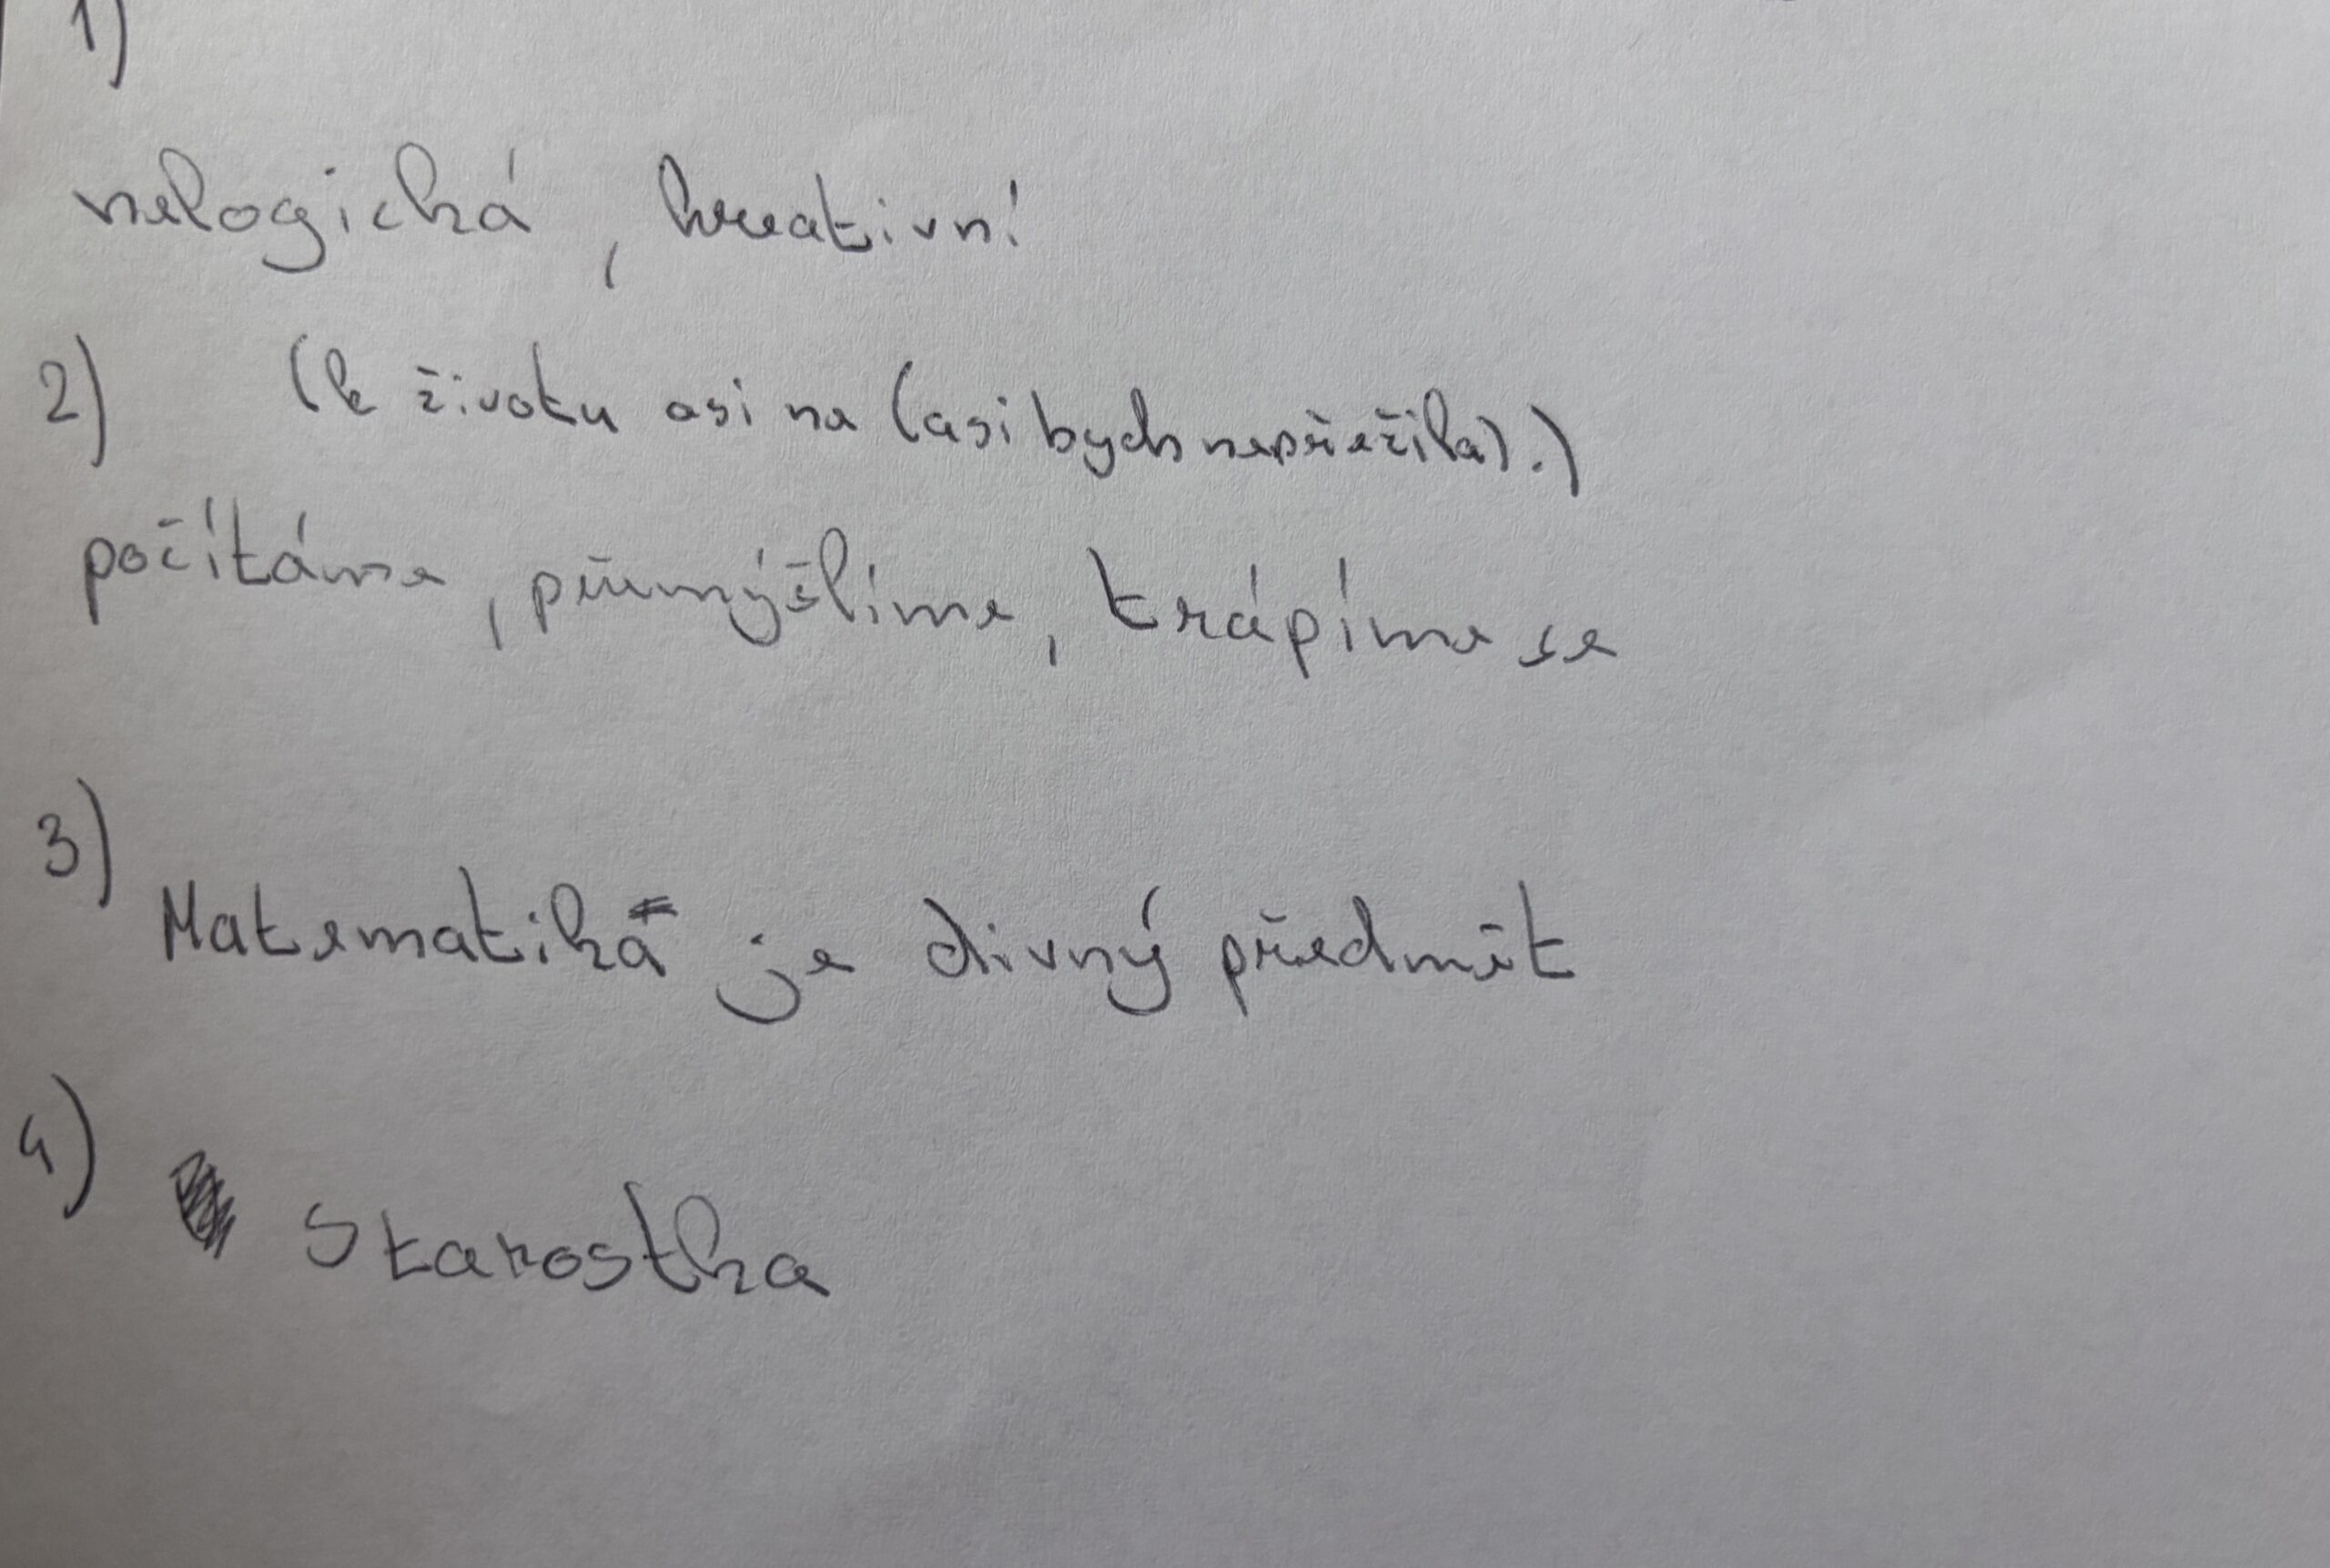 1)
nelogická, kreativní
2) (k životu asi ne (asi bych nepřežila).)
počítáme, přemýšlíme, trápíme se
3)
Matematika je divný předmět
4)
Starostka